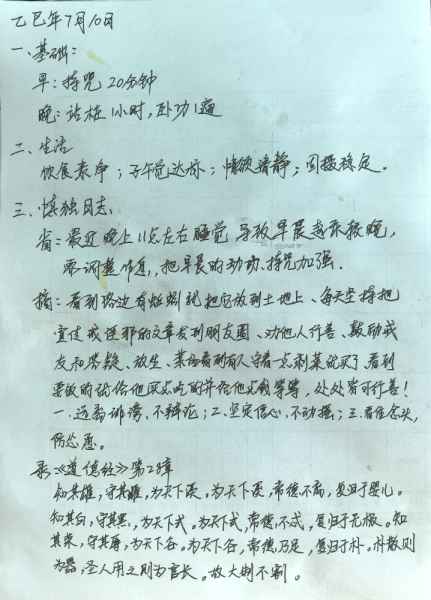 乙巳年7月10日
一、基础:
早:持咒20分钟
晚:站桩1小时,卧功1遍
二、生活
饮食素净;子午觉达标;情欲清静;回摄稳定。
三、慎独日志
省:最近晚上11点左右睡觉,导致早晨起床较晚,
需调整作息,把早晨的动功、持咒加强.
摘:看到路边有蚯蚓就把它放到土地上、每天坚持把
宣传戒邪的文章发到朋友圈、劝他人行善、鼓励戒
友和答疑、放生、菜场看到有人守着一点剩菜就买了、看到
要饭的就给他买吃的并给他点钱等等,处处皆可行善!
一、遇毁谤、不辩论;二、坚定信心,不动摇;三、看住念头,
录《道德经》第28章
知其雄,守其雌,为天下溪。为天下溪,常德不离,复归于婴儿。
知其白,守其黑,为天下式。为天下式,常德不忒,复归于无极。知
其荣,守其辱,为天下谷。为天下谷,常德乃足,复归于朴。朴散则
为器,圣人用之则为官长。故大制不割。